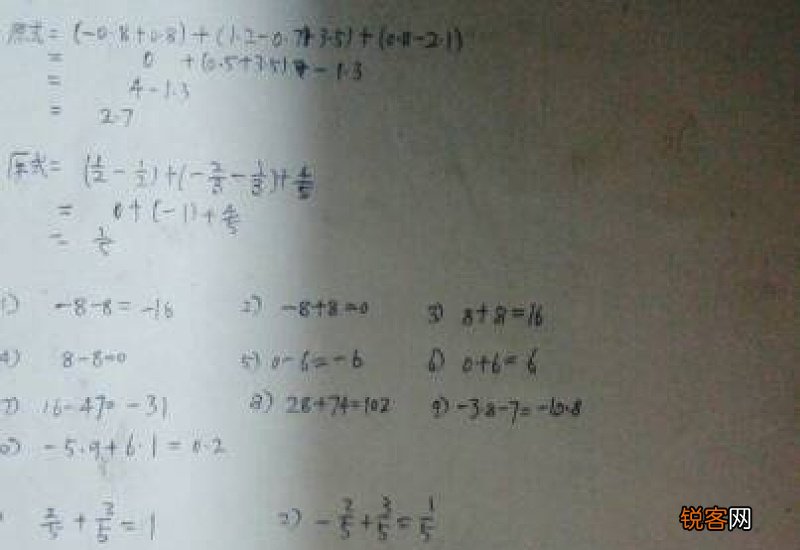 原式= (-0.8+0.8)+(1.2-0.7+3.5)+(0.8-2.1)
= 0 +(0.5+3.5)+-1.3
= 4-1.3
= 2.7
原式= (1/2-1/2)+(-2/3-1/3)+4/5
= 0+(-1)+4/5
= 1/5
1) -8-8=-16 2) -8+8=0 3) 8+8=16
4) 8-8=0 5) 0-6=-6 6) 0+6=6
7) 16-47=-31 8) 28+74=102 9) -3.8-7=-10.8
0) -5.9+6.1=0.2
2/5+3/5=1 2) -2/5+3/5=1/5
锐客网